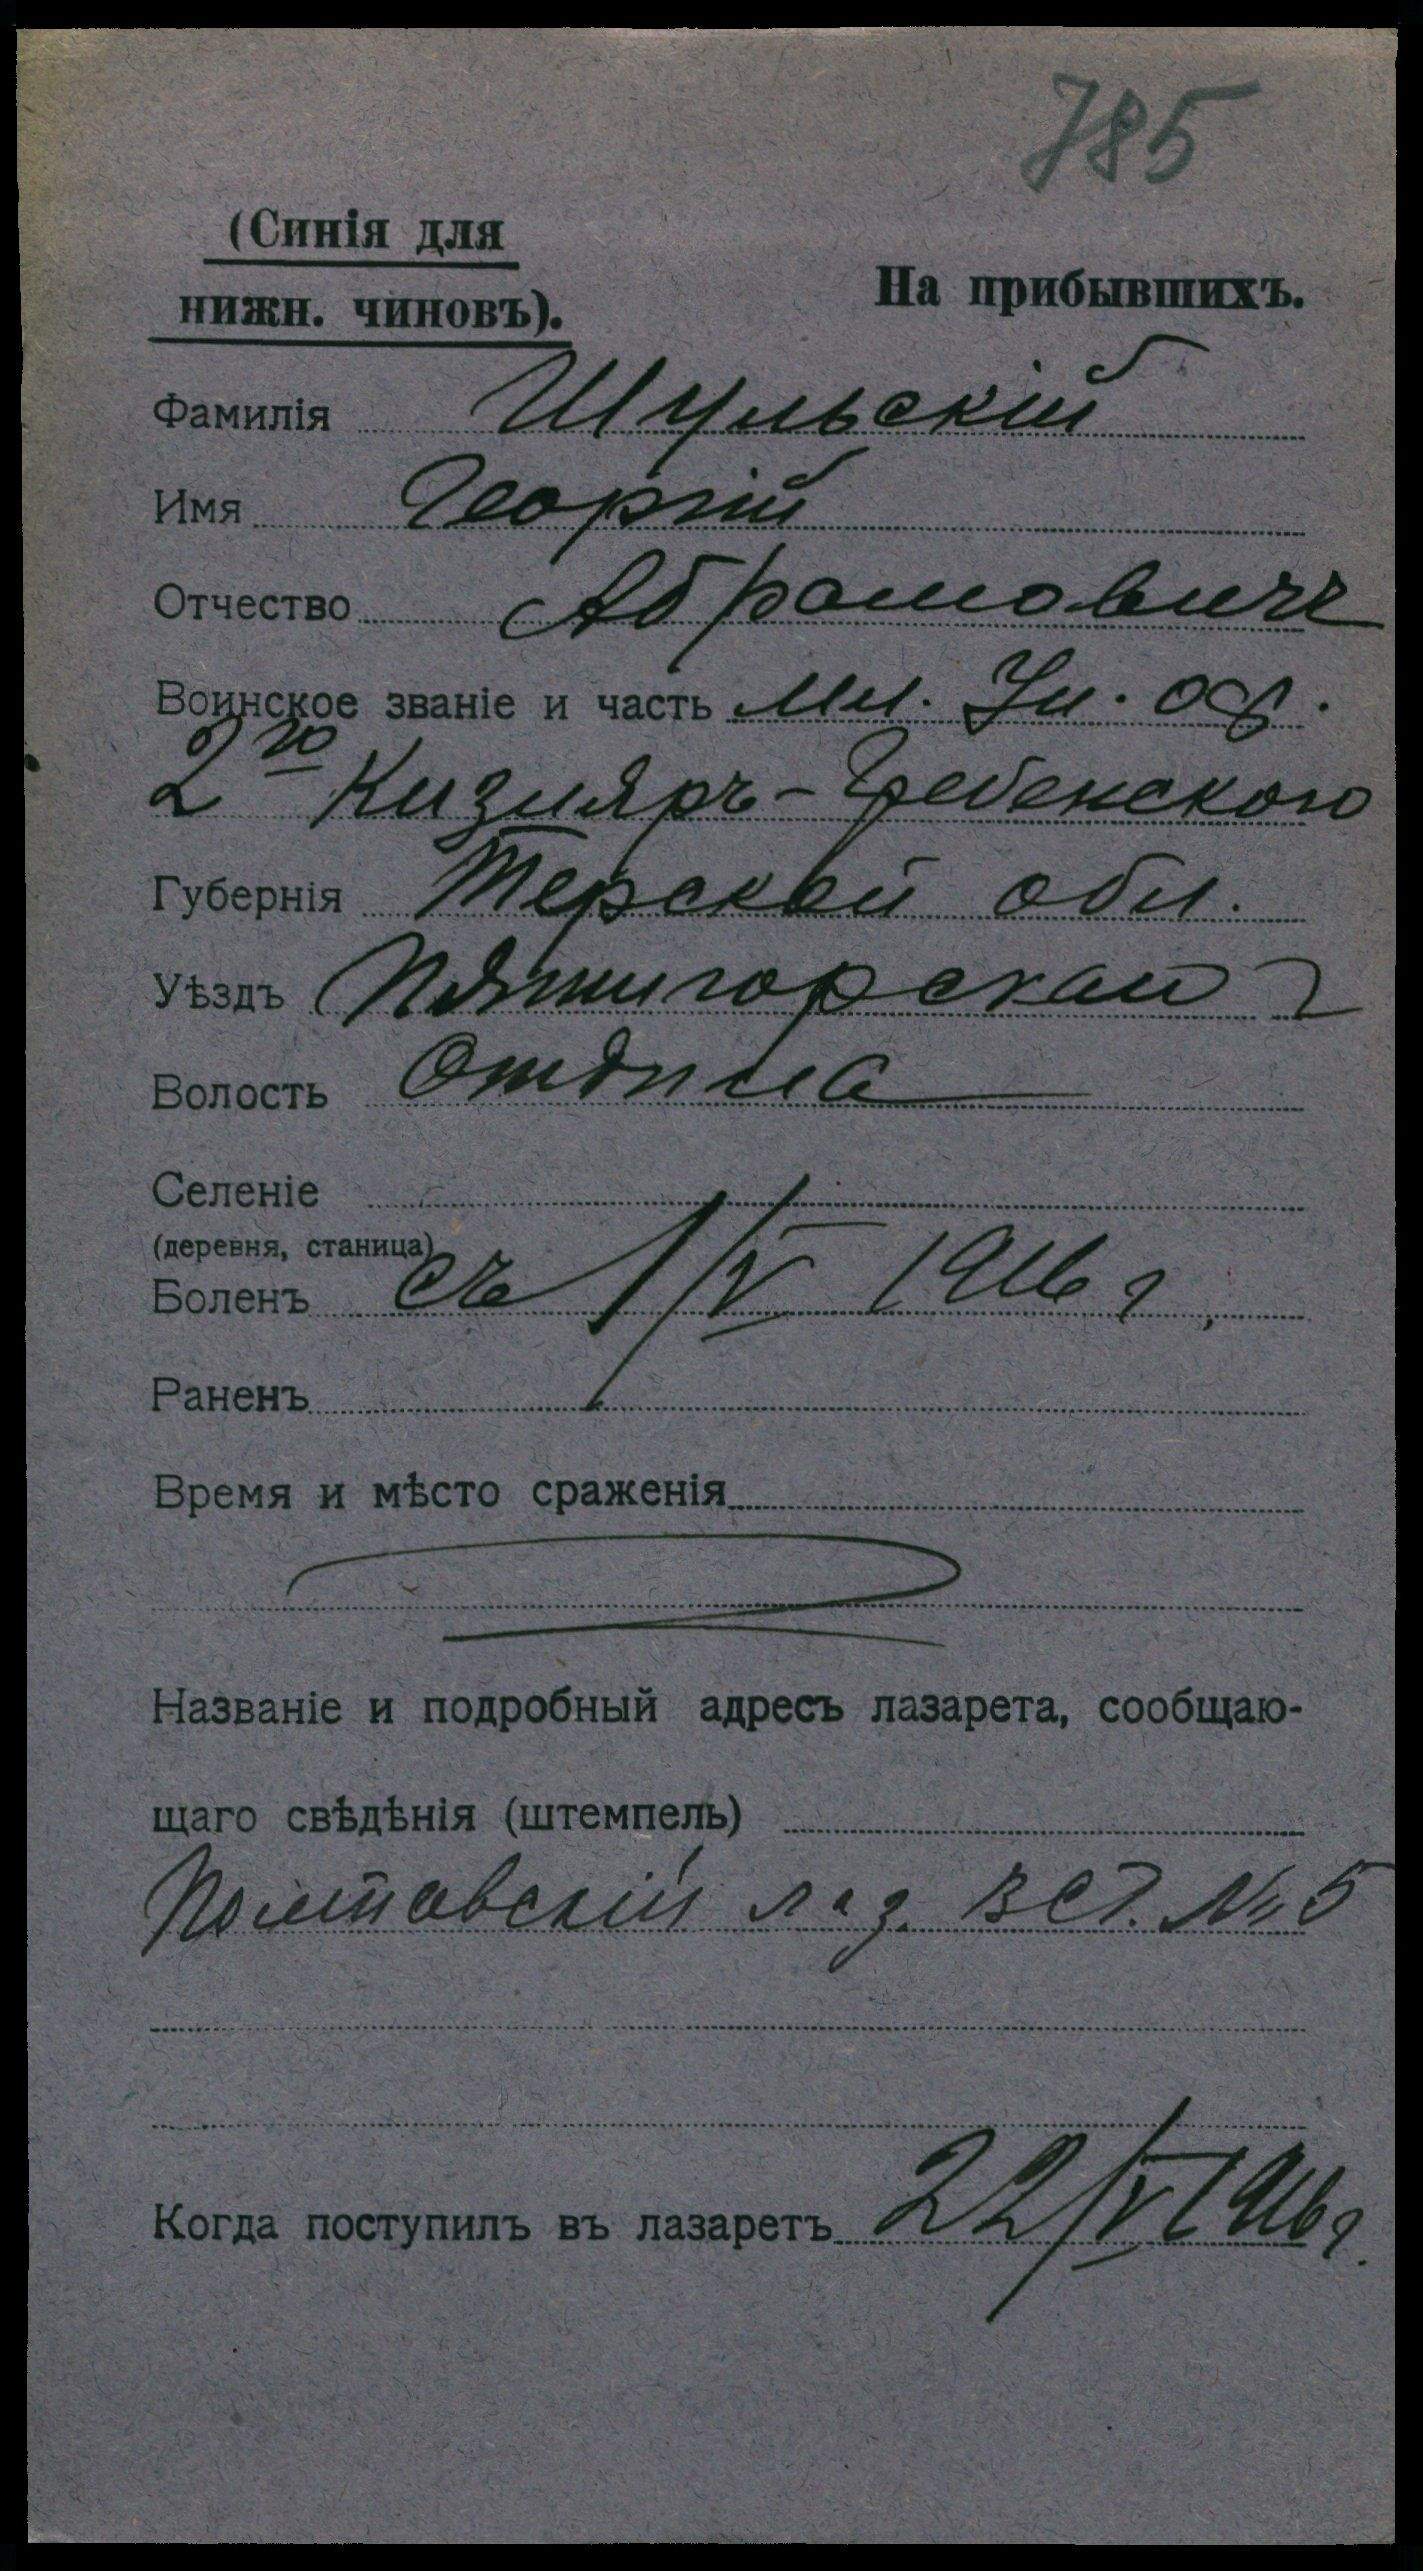 785
(Синія для
нижн. чиновъ).
На прибывшихъ.
Фамилія Шульскій
Имя Георгій
Отчество Абрамовичъ
Воинское званіе и часть Мл. Ун. оф.
2го Кизляръ-Гребенского
Губернія Терской обл.
Уѣздъ Пятигорскаго
Волость Отдѣла
Селеніе
(деревня, станица)
Боленъ съ 1/V 1916 г.
Раненъ
Время и мѣсто сраженія
Названіе и подробный адресъ лазарета, сообщаю-
щаго свѣдѣнія (штемпель)
Полтавскій лаз. ВСТ. № 5
Когда поступилъ въ лазаретъ 22/V 1916 г.